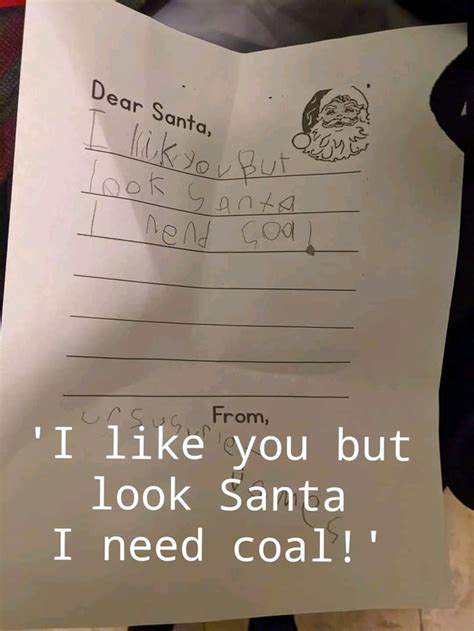 Dear Santa,
I likk you But
look Santa
I nend coal!
From,
'I like you but
look Santa
I need coal!'